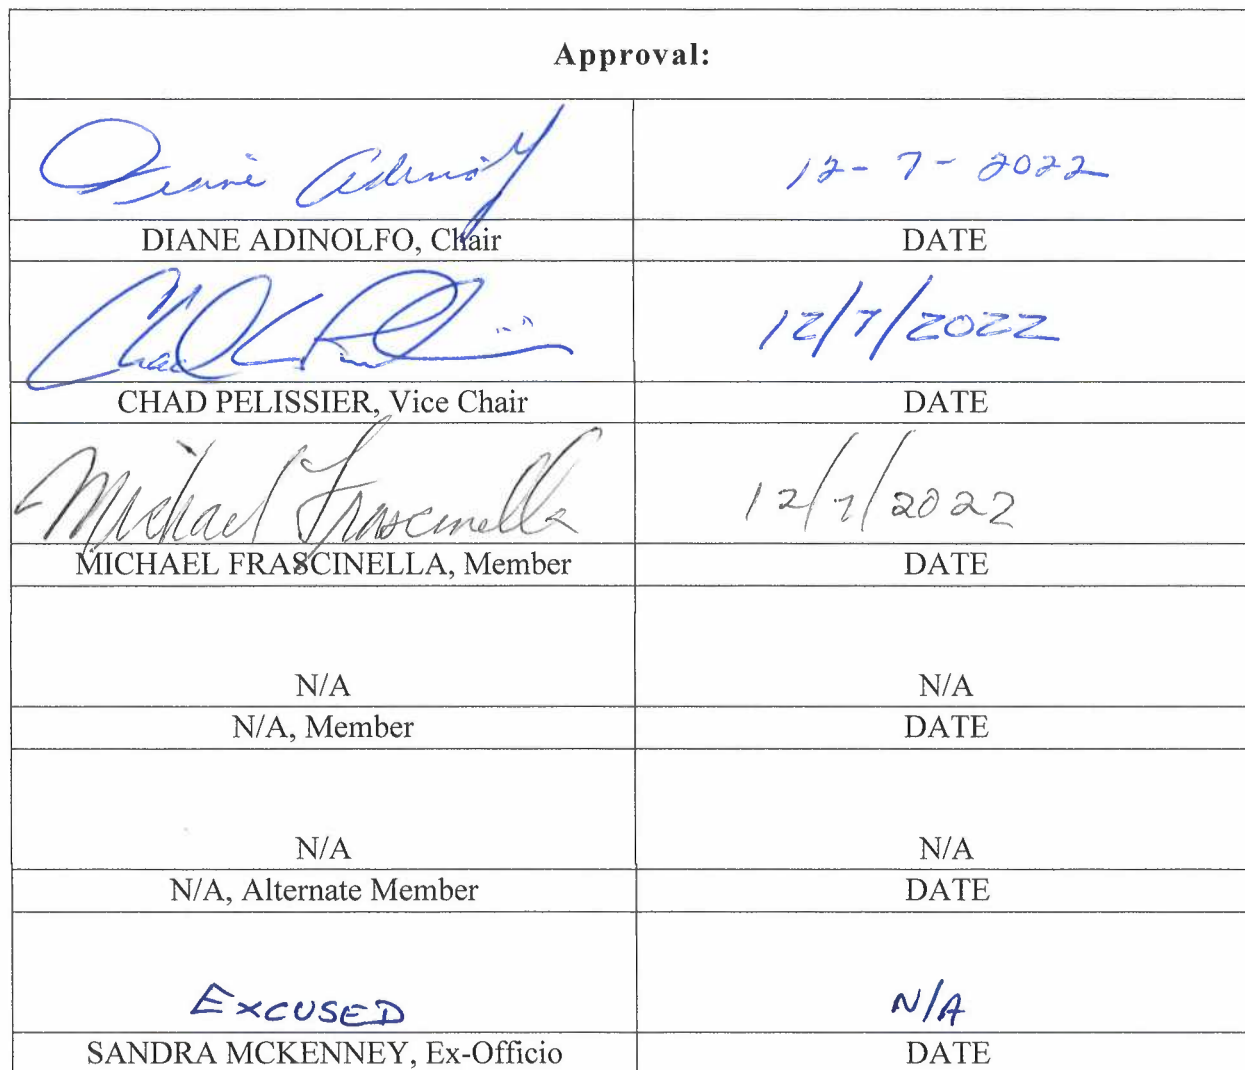 Approval:
Diane Adinolf 12-7-2022
DIANE ADINOLFO, Chair DATE
12/7/2022
CHAD PELISSIER, Vice Chair DATE
Michael Frascinella 12/7/2022
MICHAEL FRASCINELLA, Member DATE
N/A N/A
N/A, Member DATE
N/A N/A
N/A, Alternate Member DATE
EXCUSED N/A
SANDRA MCKENNEY, Ex-Officio DATE